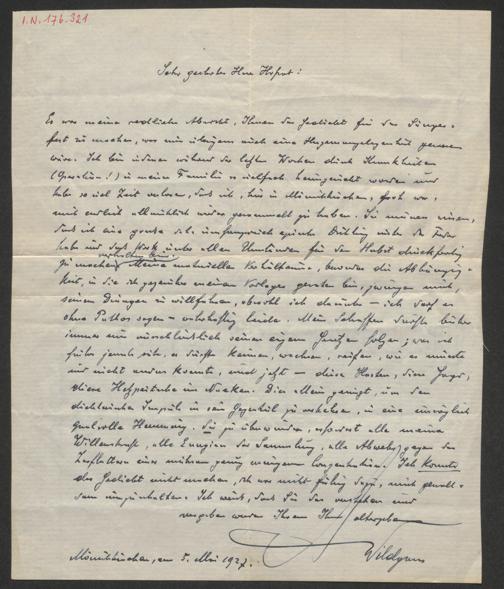 I.N. 176.321
Sehr geehrter Herr Hofrat!
Es war meine redliche Absicht, Ihnen das Gedicht für das Sänger-
fest zu machen, was mir übrigens auch eine Herzensangelegenheit gewesen
wäre. Ich bin indessen während der letzten Wochen durch Krankheiten
in meiner Familie so vielfach heimgesucht worden und
habe so viel Zeit verloren, daß ich, hier in Mönichkirchen, froh war,
mich endlich allmählich wieder gesammelt zu haben. Sie müssen wissen,
daß ich eine große, sehr umfangreiche epische Dichtung unter der Feder
habe und daß ich unter allen Umständen für den Herbst druckfertig
zu machen verpflichtet bin. Meine materiellen Verhältnisse, besonders die Abhängig-
keit, in die ich gegenüber meinem Verleger geraten bin, zwingen mich,
seinem Drängen zu willfahren, obwohl ich darunter – ich darf es
ohne Pathos sagen – wahrhaftig leide. Mein Schaffen durfte bisher
immer nur ausschließlich seinen eigenen Gesetzen folgen; was ich
früher jemals schrieb, es durfte keimen, wachsen, reifen, wie es mußte
und nicht anders konnte, und jetzt – dieses Hasten, diese Jagd,
diese Hetzpeitsche im Nacken. Dies allein genügt, um den
dichterischen Impuls in sein Gegenteil zu verkehren, in eine unsäglich
qualvolle Hemmung. Sie zu überwinden, erfordert alle meine
Willenskraft, alle Energien der Sammlung, alle Abwehr gegen das
Zerflattern einer mühsam genug errungenen Konzentration. Ich konnte
das Gedicht nicht machen, ich war nicht fähig dazu, mich gewalt-
sam umzuschalten. Ich weiß, daß Sie das verstehen und
vergeben werden Ihrem Ihnen altergebenen
Wildgans
Mönichkirchen, am 5. Mai 1927.